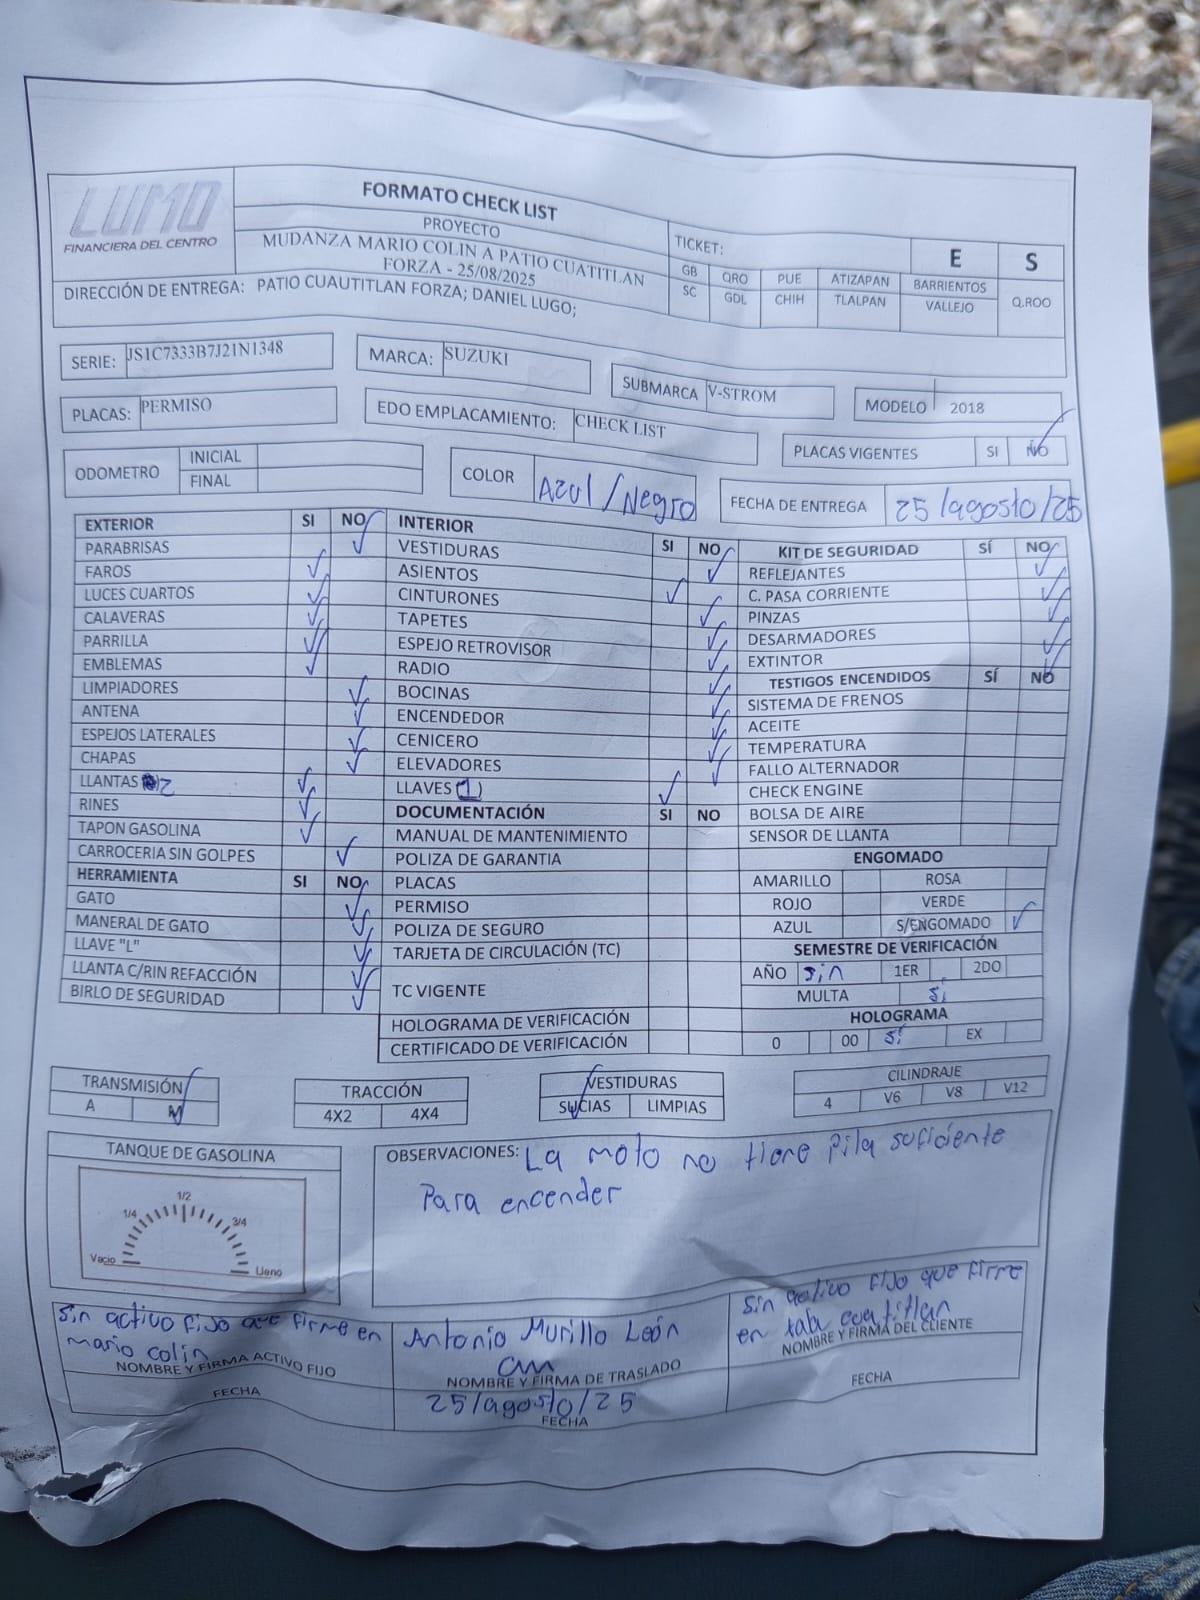 LUMO
FINANCIERA DEL CENTRO
FORMATO CHECK LIST
PROYECTO
MUDANZA MARIO COLIN A PATIO CUATITLAN
FORZA - 25/08/2025
TICKET:
E S
GB QRO PUE ATIZAPAN BARRIENTOS Q.ROO
SC GDL CHIH TLALPAN VALLEJO
DIRECCIÓN DE ENTREGA: PATIO CUAUTITLAN FORZA; DANIEL LUGO;
SERIE: JS1C7333B7J21N1348 MARCA: SUZUKI SUBMARCA V-STROM MODELO 2018
PLACAS: PERMISO EDO EMPLACAMIENTO: CHECK LIST PLACAS VIGENTES SI NO
ODOMETRO INICIAL
FINAL
COLOR Azul/Negro FECHA DE ENTREGA 25/agosto/25
EXTERIOR SI NO
PARABRISAS
FAROS
LUCES CUARTOS
CALAVERAS
PARRILLA
EMBLEMAS
LIMPIADORES
ANTENA
ESPEJOS LATERALES
CHAPAS
LLANTAS 2
RINES
TAPON GASOLINA
CARROCERIA SIN GOLPES
HERRAMIENTA SI NO
GATO
MANERAL DE GATO
LLAVE "L"
LLANTA C/RIN REFACCIÓN
BIRLO DE SEGURIDAD
INTERIOR SI NO
VESTIDURAS
ASIENTOS
CINTURONES
TAPETES
ESPEJO RETROVISOR
RADIO
BOCINAS
ENCENDEDOR
CENICERO
ELEVADORES
LLAVES (1)
DOCUMENTACIÓN SI NO
MANUAL DE MANTENIMIENTO
POLIZA DE GARANTIA
PLACAS
PERMISO
POLIZA DE SEGURO
TARJETA DE CIRCULACIÓN (TC)
TC VIGENTE
HOLOGRAMA DE VERIFICACIÓN
CERTIFICADO DE VERIFICACIÓN
KIT DE SEGURIDAD SÍ NO
REFLEJANTES
C. PASA CORRIENTE
PINZAS
DESARMADORES
EXTINTOR
TESTIGOS ENCENDIDOS SÍ NO
SISTEMA DE FRENOS
ACEITE
TEMPERATURA
FALLO ALTERNADOR
CHECK ENGINE
BOLSA DE AIRE
SENSOR DE LLANTA
ENGOMADO
AMARILLO ROSA
ROJO VERDE
AZUL S/ENGOMADO
SEMESTRE DE VERIFICACIÓN
AÑO sin 1ER 2DO
MULTA si
HOLOGRAMA
0 00 si EX
TRANSMISIÓN
A M
TRACCIÓN
4X2 4X4
VESTIDURAS
SUCIAS LIMPIAS
CILINDRAJE
4 V6 V8 V12
TANQUE DE GASOLINA
Vacio 1/4 1/2 3/4 Lleno
OBSERVACIONES: La moto no tiene Pila suficiente
Para encender
Sin activo fijo que firme en
mario colin
NOMBRE Y FIRMA ACTIVO FIJO
FECHA
Antonio Murillo León
NOMBRE Y FIRMA DE TRASLADO
25/agosto/25
FECHA
Sin activo fijo que firme
en cuatitlan
NOMBRE Y FIRMA DEL CLIENTE
FECHA